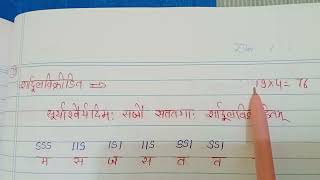 शार्दूलविक्रीडित ⇒ 19×4= 76
सूर्याश्वैर्यदिमः सजौ सततगाः शार्दूलविक्रीडितम्
SSS IIS ISI IIS SSI SSI
म स ज स त त